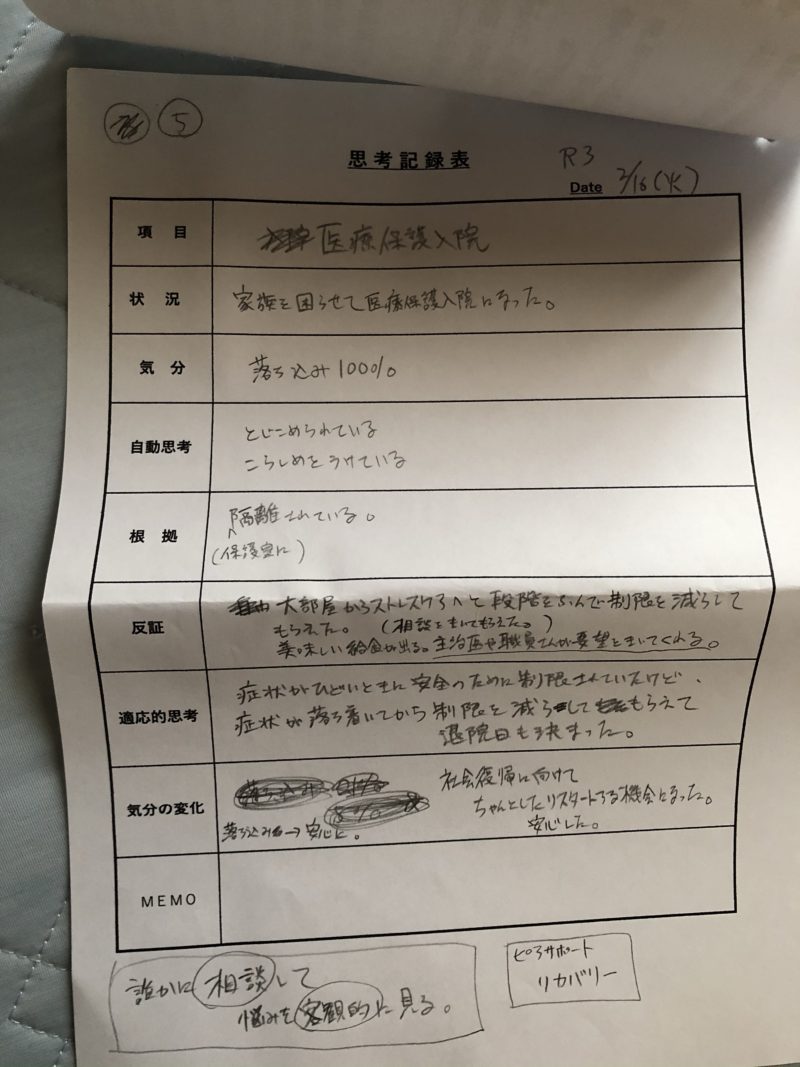 5
思考記録表
R3
Date 2/16(火)
項 目
医療保護入院
状 況
家族を困らせて医療保護入院になった。
気 分
落ち込み100%
自動思考
とじこめられている
こらしめをうけている
根 拠
隔離されている。
(保護室に)
反証
大部屋からストレスケアへと段階をふんで制限を減らして
もらえた。(相談をきいてもらえた。)
美味しい給食が出る。主治医や職員さんが要望をきいてくれる。
適応的思考
症状がひどいときに安全のために制限されていたけど、
症状が落ち着いてから制限を減らしてもらえて
退院日も決まった。
気分の変化
落ち込み→安心に。
社会復帰に向けて
ちゃんとしたリスタートする機会になった。
安心した。
MEMO
誰かに相談して
悩みを客観的に見る。
ピアサポート
リカバリー